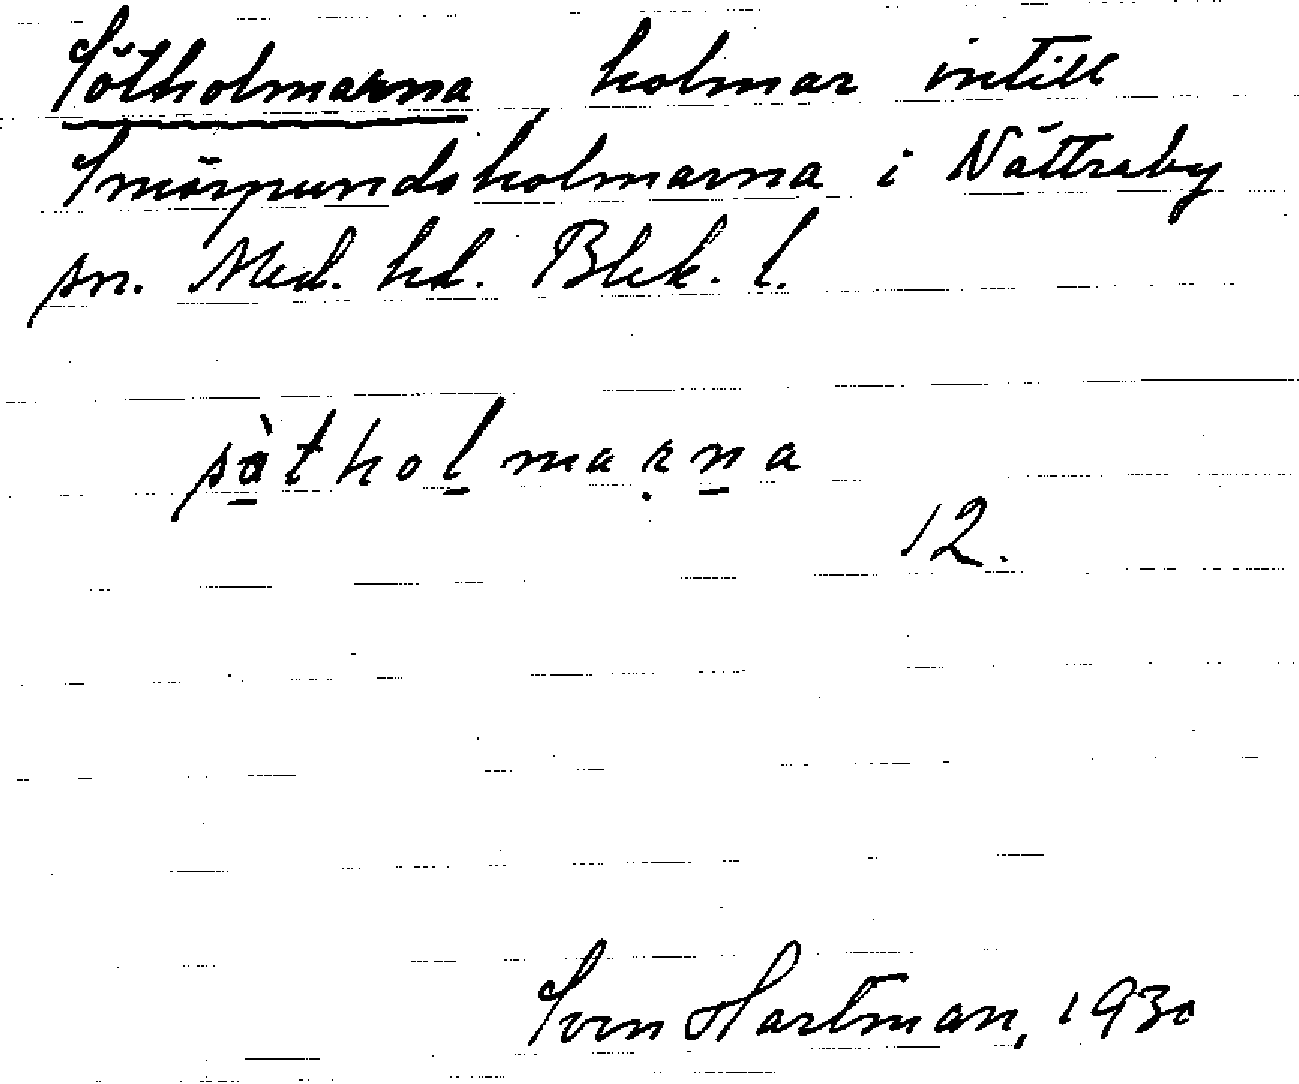 Sötholmarna holmar intill
Smörpundsholmarna i Nättraby
sn. Med. hd. Blek. l.
sàtholmarna
12.
Sven Hartman, 1930